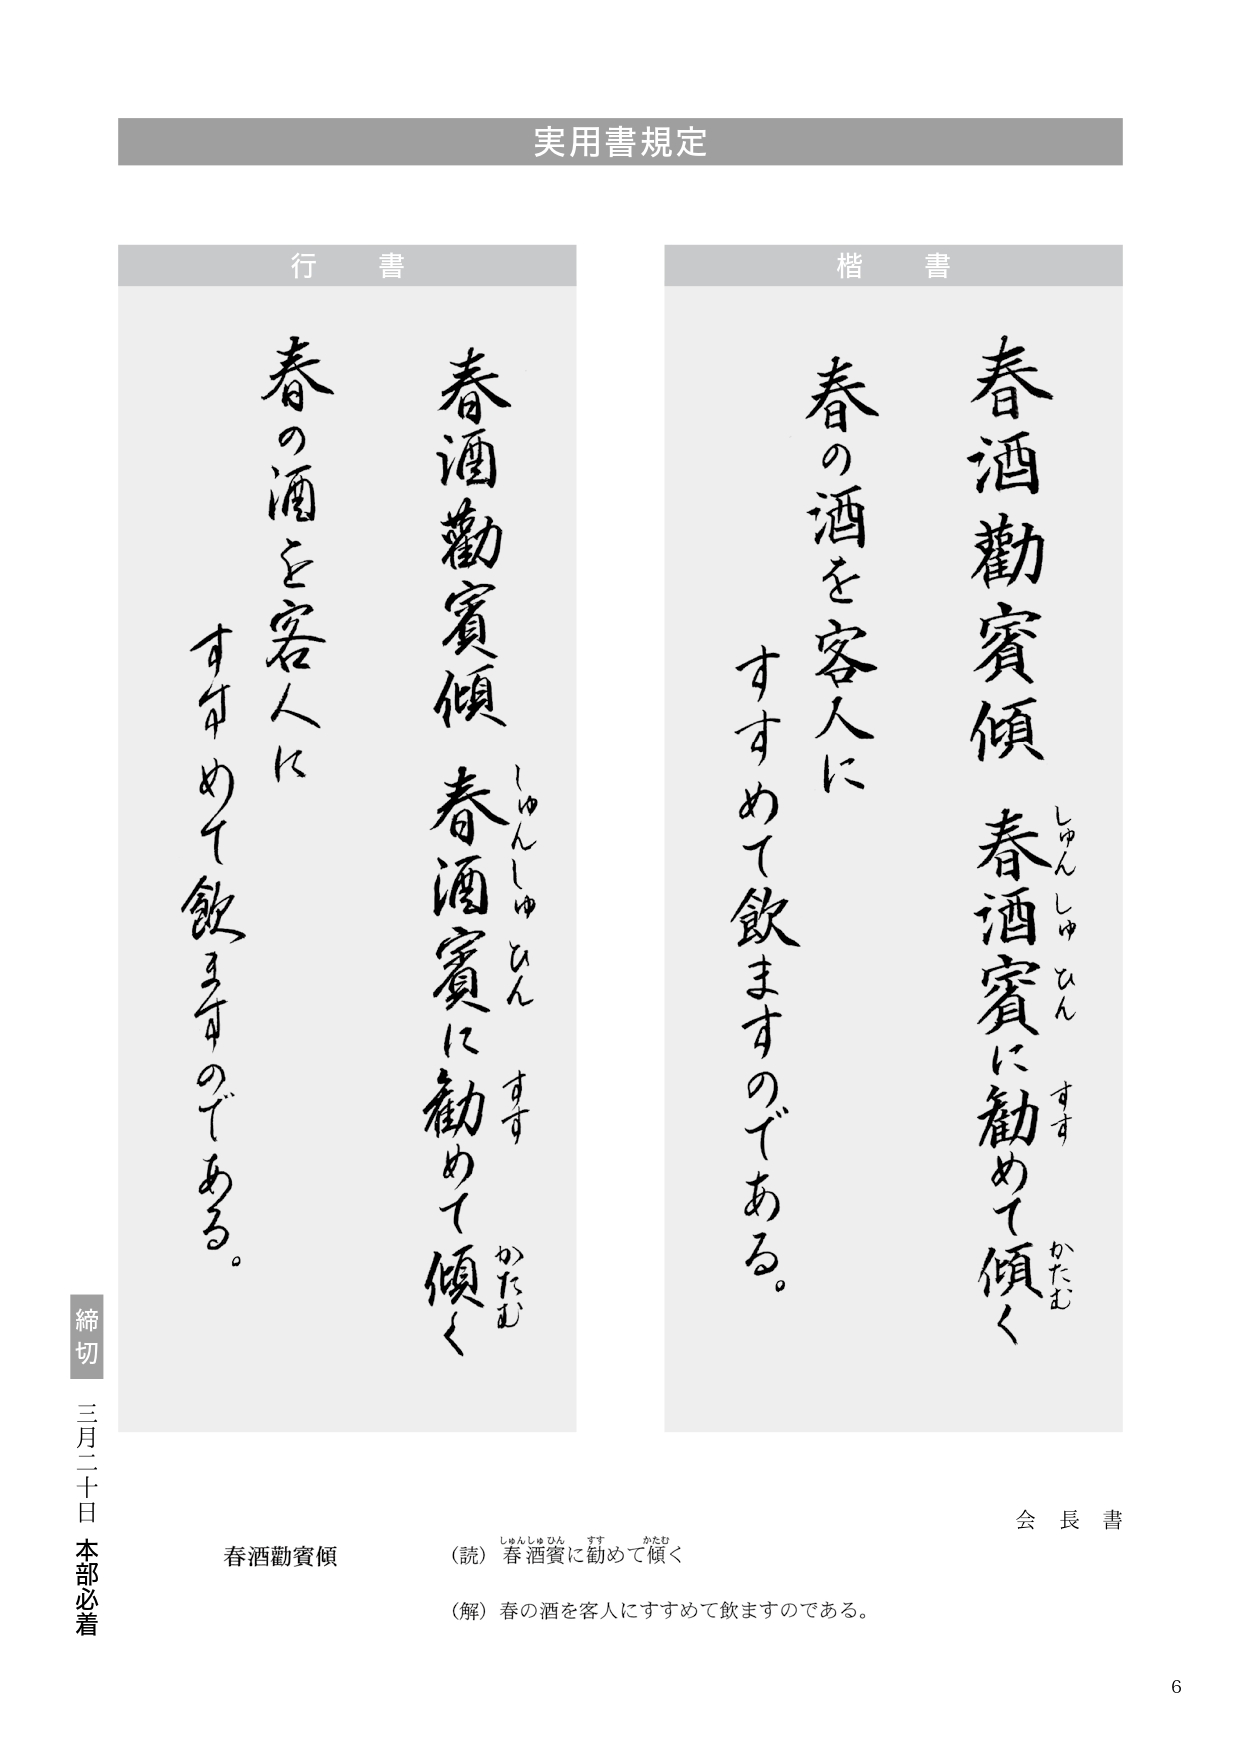 実用書規定
楷　書
春酒勸賓傾　春酒賓に勧めて傾く
しゅんしゅひん　すす　かたむ
春の酒を客人に
すすめて飲ますのである。
行　書
春酒勸賓傾　春酒賓に勧めて傾く
しゅんしゅひん　すす　かたむ
春の酒を客人に
すすめて飲ますのである。
会長書
春酒勸賓傾
しゅんしゅひん　すす　かたむ
（読）春酒賓に勧めて傾く
（解）春の酒を客人にすすめて飲ますのである。
締切　三月二十日　本部必着
6